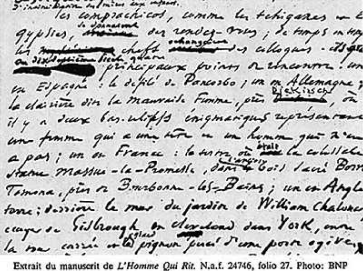 les comprachicos, comme les tchiganes
gypsies, des rendez-vous; de temps en temps
les chefs des colloques
en dix-septième siècle quatre
principaux points de rencontre un
en Espagne: le défilé de Pancorbo; un en Allemagne
la clairière dite la mauvaise Femme, près Diekirsch, où
il y a deux bas-reliefs énigmatiques représentant
une femme qui a une tête et un homme qui n'en
a pas; un en France: le tertre où était la colossale
statue Massue-la-Promesse, dans le bois sacré Borvo
Tomona, près de Bourbonne-les-Bains; un en Angle
terre: derrière le mur du jardin de William Chaloner
écuyer de Gisbrough en Cleveland dans York, entre
la tour carrée et le grand pignon percé d'une porte ogive
Extrait du manuscrit de L'Homme Qui Rit. N.a.f. 24746, folio 27. Photo: BNP